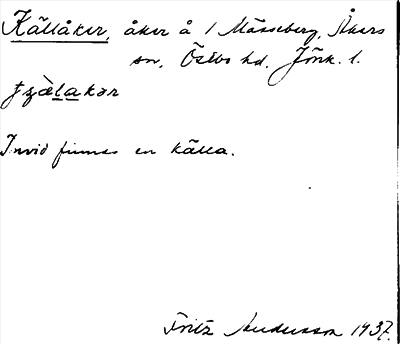 Källåker, åker å 1 Mässeberg, Åkers
sn, Östbo hd, Jönk. l.
Invid finnes en källa.
Fritz Andersson 1937.